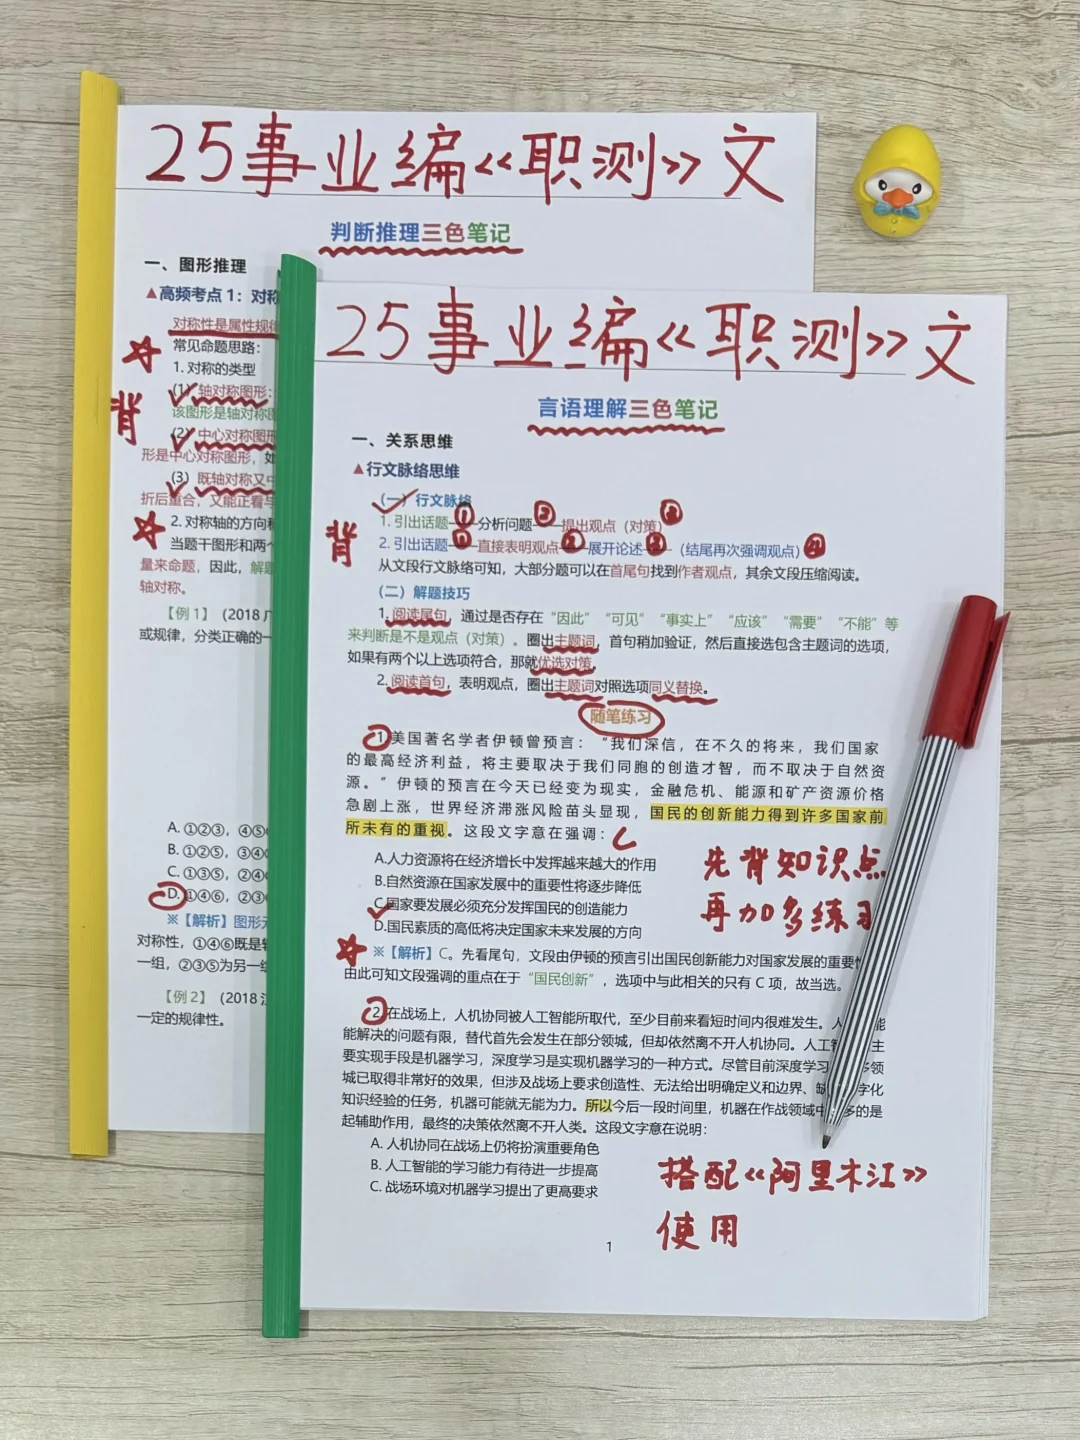 25事业编《职测》文
判断推理三色笔记
一、图形推理
▲高频考点1：对称
对称性是属性规律
常见命题思路：
1. 对称的类型
背
(1) 轴对称图形：
该图形是轴对称图
(2) 中心对称图形
形是中心对称图形，如
(3) 既轴对称又中
折后重合，又能正看与
2. 对称轴的方向和
当题干图形和两个
量来命题，因此，解题
轴对称。
【例1】（2018 广
或规律，分类正确的一
A. ①②③，④⑤
B. ①②⑤，③④
C. ①③⑤，②④
D. ①④⑥，②③
※【解析】图形元
对称性，①④⑥既是轴
一组，②③⑤为另一组
【例2】（2018 江
一定的规律性。
25事业编《职测》文
言语理解三色笔记
一、关系思维
▲行文脉络思维
（一）行文脉络
背
1. 引出话题①分析问题②提出观点（对策）③
2. 引出话题①直接表明观点②展开论述③（结尾再次强调观点）④
从文段行文脉络可知，大部分题可以在首尾句找到作者观点，其余文段压缩阅读。
（二）解题技巧
1. 阅读尾句，通过是否存在“因此”“可见”“事实上”“应该”“需要”“不能”等
来判断是不是观点（对策）。圈出主题词，首句稍加验证，然后直接选包含主题词的选项，
如果有两个以上选项符合，那就优选对策。
2. 阅读首句，表明观点，圈出主题词对照选项同义替换。
随笔练习
1.美国著名学者伊顿曾预言：“我们深信，在不久的将来，我们国家
的最高经济利益，将主要取决于我们同胞的创造才智，而不取决于自然资
源。”伊顿的预言在今天已经变为现实，金融危机、能源和矿产资源价格
急剧上涨，世界经济滞涨风险苗头显现，国民的创新能力得到许多国家前
所未有的重视。这段文字意在强调：C
A.人力资源将在经济增长中发挥越来越大的作用
B.自然资源在国家发展中的重要性将逐步降低
C.国家要发展必须充分发挥国民的创造能力
D.国民素质的高低将决定国家未来发展的方向
先背知识点
再加多练习
※【解析】C。先看尾句，文段由伊顿的预言引出国民创新能力对国家发展的重要性
由此可知文段强调的重点在于“国民创新”，选项中与此相关的只有 C 项，故当选。
2.在战场上，人机协同被人工智能所取代，至少目前来看短时间内很难发生。人 能
能解决的问题有限，替代首先会发生在部分领域，但却依然离不开人机协同。人工智 主
要实现手段是机器学习，深度学习是实现机器学习的一种方式。尽管目前深度学习 多领
域已取得非常好的效果，但涉及战场上要求创造性、无法给出明确定义和边界、缺 字化
知识经验的任务，机器可能就无能为力。所以今后一段时间里，机器在作战领域中 多的是
起辅助作用，最终的决策依然离不开人类。这段文字意在说明：
A. 人机协同在战场上仍将扮演重要角色
B. 人工智能的学习能力有待进一步提高
C. 战场环境对机器学习提出了更高要求
搭配《阿里木江》
使用
1